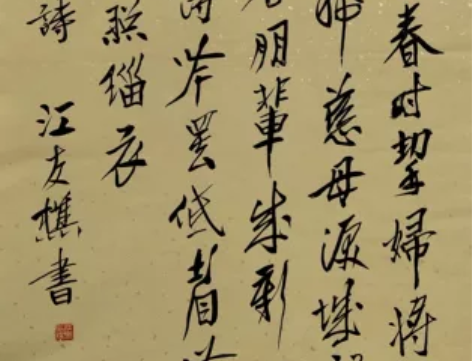 春时挈婦將
稀慈母淚城
朋輩成新
吟罷低眉
照緇衣
詩 江友樵書